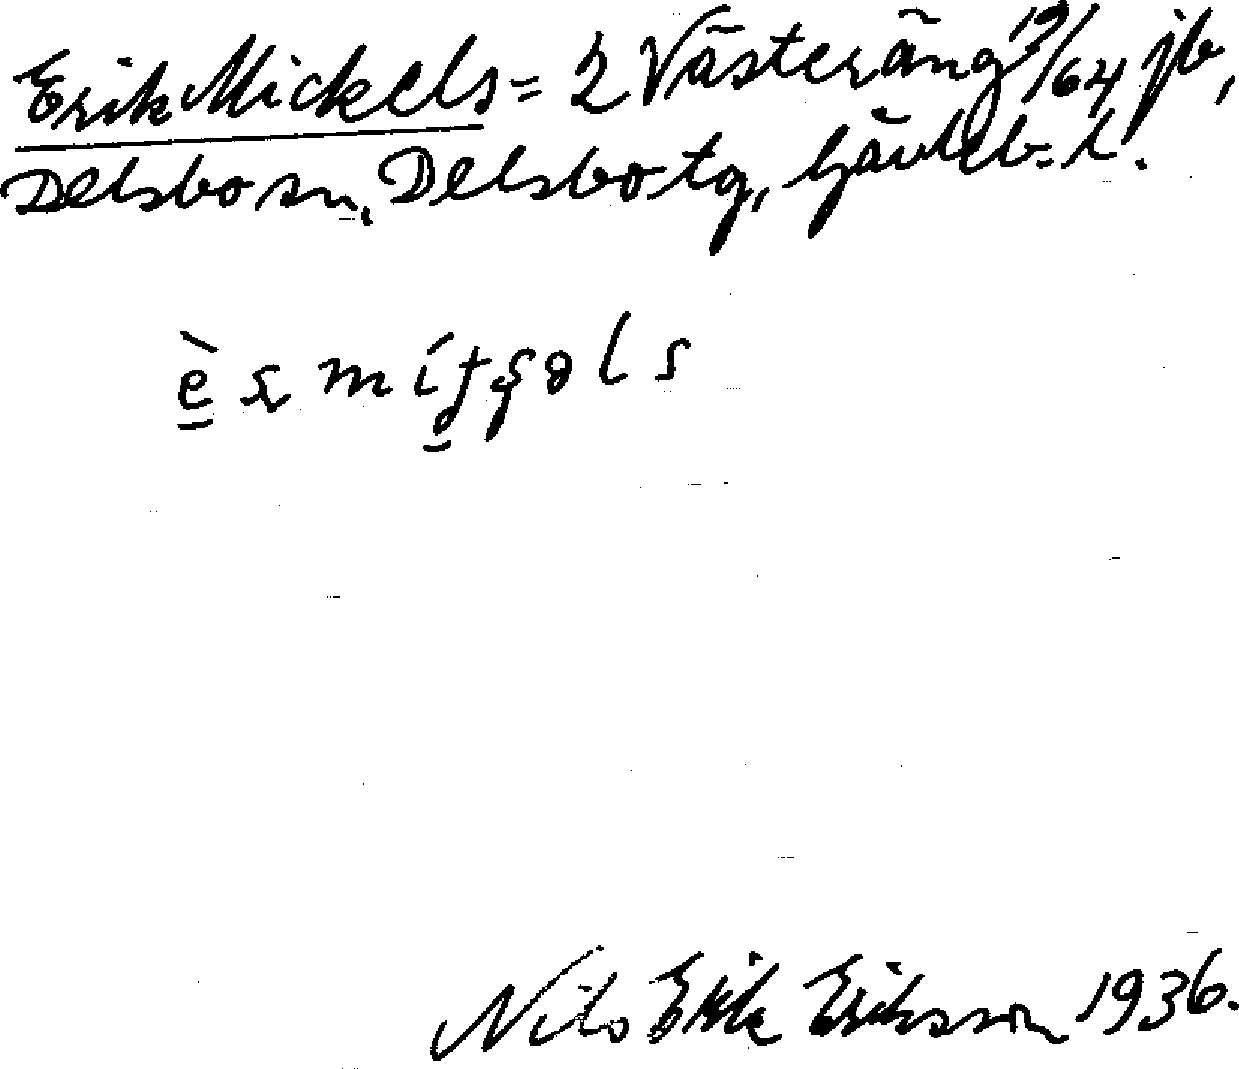 Erik Mickels = 2 Västeräng 19/64 jb,
Delsbo sn, Delsbo tg, Gävleb. l.
Nils Erik Eriksson 1936.